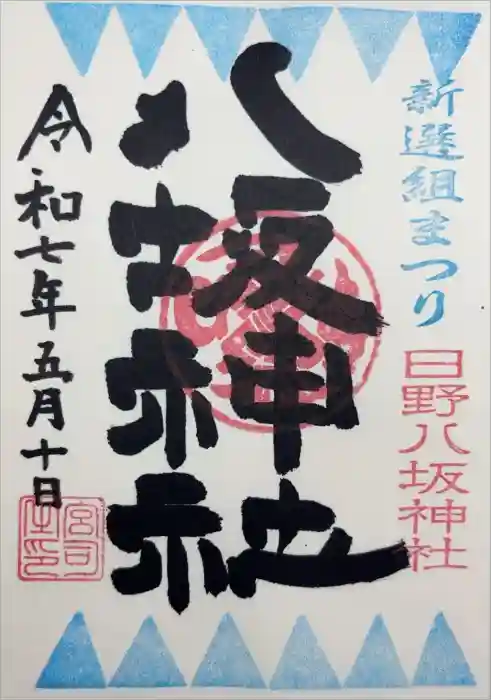 新選組まつり
日野八坂神社
八坂神社
令和七年五月十日
宮司之印